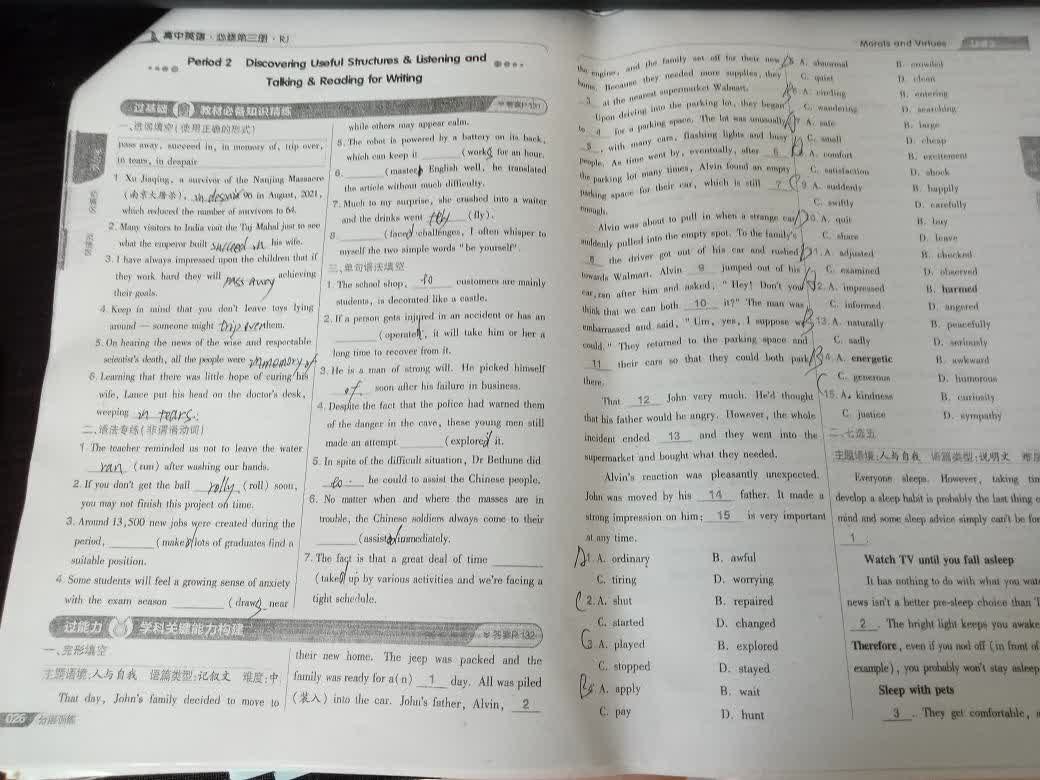 高中英语·必修第三册·RJ
Period 2 Discovering Useful Structures & Listening and
Talking & Reading for Writing
过基础 教材必备知识精练
答案P.131
一、选词填空(使用正确的形式)
pass away, succeed in, in memory of, trip over,
in tears, in despair
1. Xu Jiaqing, a survivor of the Nanjing Massacre
(南京大屠杀), 96 in August, 2021,
which reduced the number of survivors to 64.
2. Many visitors to India visit the Taj Mahal just to see
what the emperor built succeed in his wife.
3. I have always impressed upon the children that if
they work hard they will pass away achieving
their goals.
4. Keep in mind that you don't leave toys lying
around — someone might trip over them.
5. On hearing the news of the wise and respectable
scientist's death, all the people were in memory of
6. Learning that there was little hope of curing his
wife, Lance put his head on the doctor's desk,
weeping in tears.
二、语法专练(非谓语动词)
1. The teacher reminded us not to leave the water
ran (run) after washing our hands.
2. If you don't get the ball rolly (roll) soon,
you may not finish this project on time.
3. Around 13,500 new jobs were created during the
period, ______ (make) lots of graduates find a
suitable position.
4. Some students will feel a growing sense of anxiety
with the exam season ______ (draw) near
while others may appear calm.
5. The robot is powered by a battery on its back,
which can keep it ______ (work) for an hour.
6. ______ (master) English well, he translated
the article without much difficulty.
7. Much to my surprise, she crashed into a waiter
and the drinks went (fly).
8. ______ (face) challenges, I often whisper to
myself the two simple words "be yourself".
三、单句语法填空
1. The school shop, to customers are mainly
students, is decorated like a castle.
2. If a person gets injured in an accident or has an
______ (operate), it will take him or her a
long time to recover from it.
3. He is a man of strong will. He picked himself
of soon after his failure in business.
4. Despite the fact that the police had warned them
of the danger in the cave, these young men still
made an attempt ______ (explore) it.
5. In spite of the difficult situation, Dr Bethune did
to he could to assist the Chinese people.
6. No matter when and where the masses are in
trouble, the Chinese soldiers always come to their
______ (assist) immediately.
7. The fact is that a great deal of time ______
(take) up by various activities and we're facing a
tight schedule.
过能力 学科关键能力构建
答案P.132
一、完形填空
主题语境:人与自我 语篇类型:记叙文 难度:中
That day, John's family decided to move to
their new home. The jeep was packed and the
family was ready for a(n) 1 day. All was piled
(装入) into the car. John's father, Alvin, 2
026 分层训练
Morals and Virtues
the engine, and the family set off for their new
home. Because they needed more supplies, they
3 at the nearest supermarket Walmart.
Upon driving into the parking lot, they began
to 4 for a parking space. The lot was unusually
5, with many cars, flashing lights and busy
people. As time went by, eventually, after 6
the parking lot many times, Alvin found an empty
parking space for their car, which is still 7
enough.
Alvin was about to pull in when a strange car
suddenly pulled into the empty spot. To the family's
8 the driver got out of his car and rushed
towards Walmart. Alvin 9 jumped out of his
car, ran after him and asked, "Hey! Don't you
think that we can both 10 it?" The man was
embarrassed and said, "Um, yes, I suppose we
could." They returned to the parking space and
11 their cars so that they could both park
there.
That 12 John very much. He'd thought
that his father would be angry. However, the whole
incident ended 13 and they went into the
supermarket and bought what they needed.
Alvin's reaction was pleasantly unexpected.
John was moved by his 14 father. It made a
strong impression on him; 15 is very important
at any time.
1. A. ordinary B. awful
C. tiring D. worrying
2. A. shut B. repaired
C. started D. changed
3. A. played B. explored
C. stopped D. stayed
4. A. apply B. wait
C. pay D. hunt
5. A. abnormal B. crowded
C. quiet D. clean
6. A. circling B. entering
C. wandering D. searching
7. A. safe B. large
C. small D. cheap
8. A. comfort B. excitement
C. satisfaction D. shock
9. A. suddenly B. happily
C. swiftly D. carefully
10. A. quit B. buy
C. share D. leave
11. A. adjusted B. checked
C. examined D. observed
12. A. impressed B. harmed
C. informed D. angered
13. A. naturally B. peacefully
C. sadly D. seriously
14. A. energetic B. awkward
C. generous D. humorous
15. A. kindness B. curiosity
C. justice D. sympathy
二、七选五
主题语境:人与自我 语篇类型:说明文
Everyone sleeps. However, taking
develop a sleep habit is probably the last thing
mind and some sleep advice simply can't be
1.
Watch TV until you fall asleep
It has nothing to do with what you
news isn't a better pre-sleep choice than
2. The bright light keeps you awake
Therefore, even if you nod off (in front of
example), you probably won't stay asleep
Sleep with pets
3. They get comfortable,